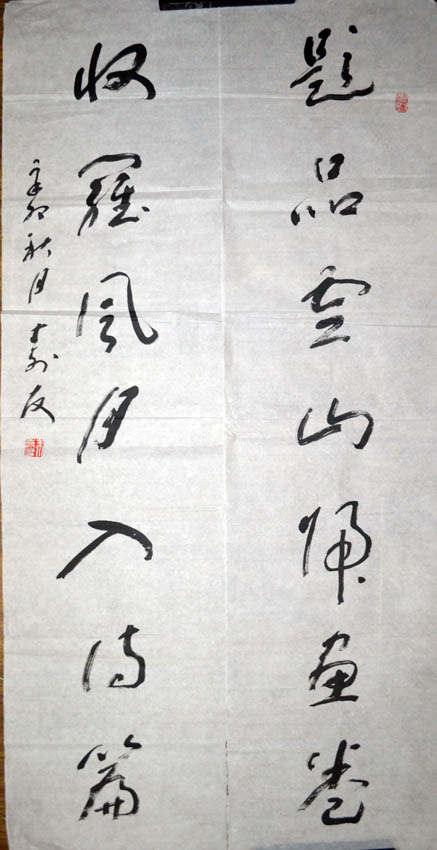 題品雲山歸畫卷
收羅風月入詩篇
辛卯秋月